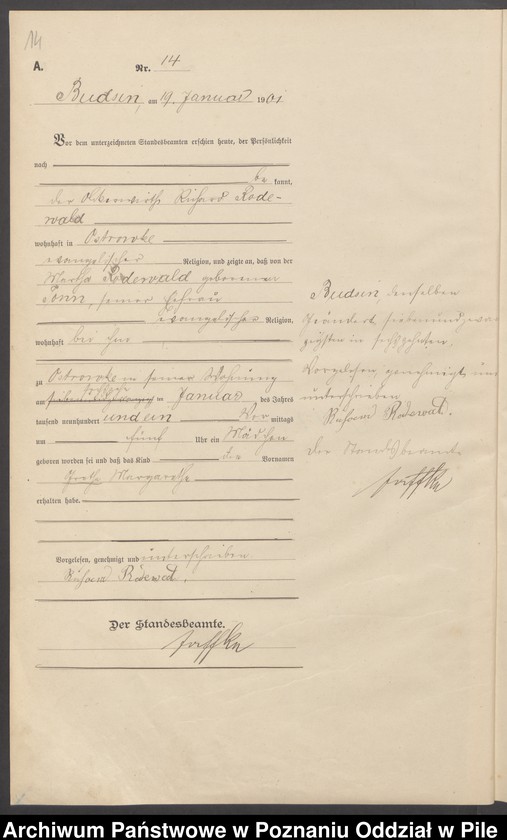 14
A.
Nr. 14
Budsin, am 19. Januar 1901
Vor dem unterzeichneten Standesbeamten erschien heute, der Persönlichkeit
nach
be kannt,
der Richard Rode-
wald
wohnhaft in Ostrowke
evangelischer Religion, und zeigte an, daß von der
Martha Rodewald geborenen
Tonn, seiner Ehefrau
evangelischer Religion,
wohnhaft bei ihm
zu Ostrowke in seiner Wohnung
am ten Januar des Jahres
tausend neunhundert und ein Vor mittags
um fünf Uhr ein Mädchen
geboren worden sei und daß das Kind die Vornamen
Margarethe
erhalten habe.
Vorgelesen, genehmigt und unterschrieben.
Richard Rodewald.
Der Standesbeamte.
Budsin, denselben
Geändert
Vorgelesen, genehmigt und
unterschrieben
Richard Rodewald.
Der Standesbeamte
Archiwum Państwowe w Poznaniu Oddział w Pile